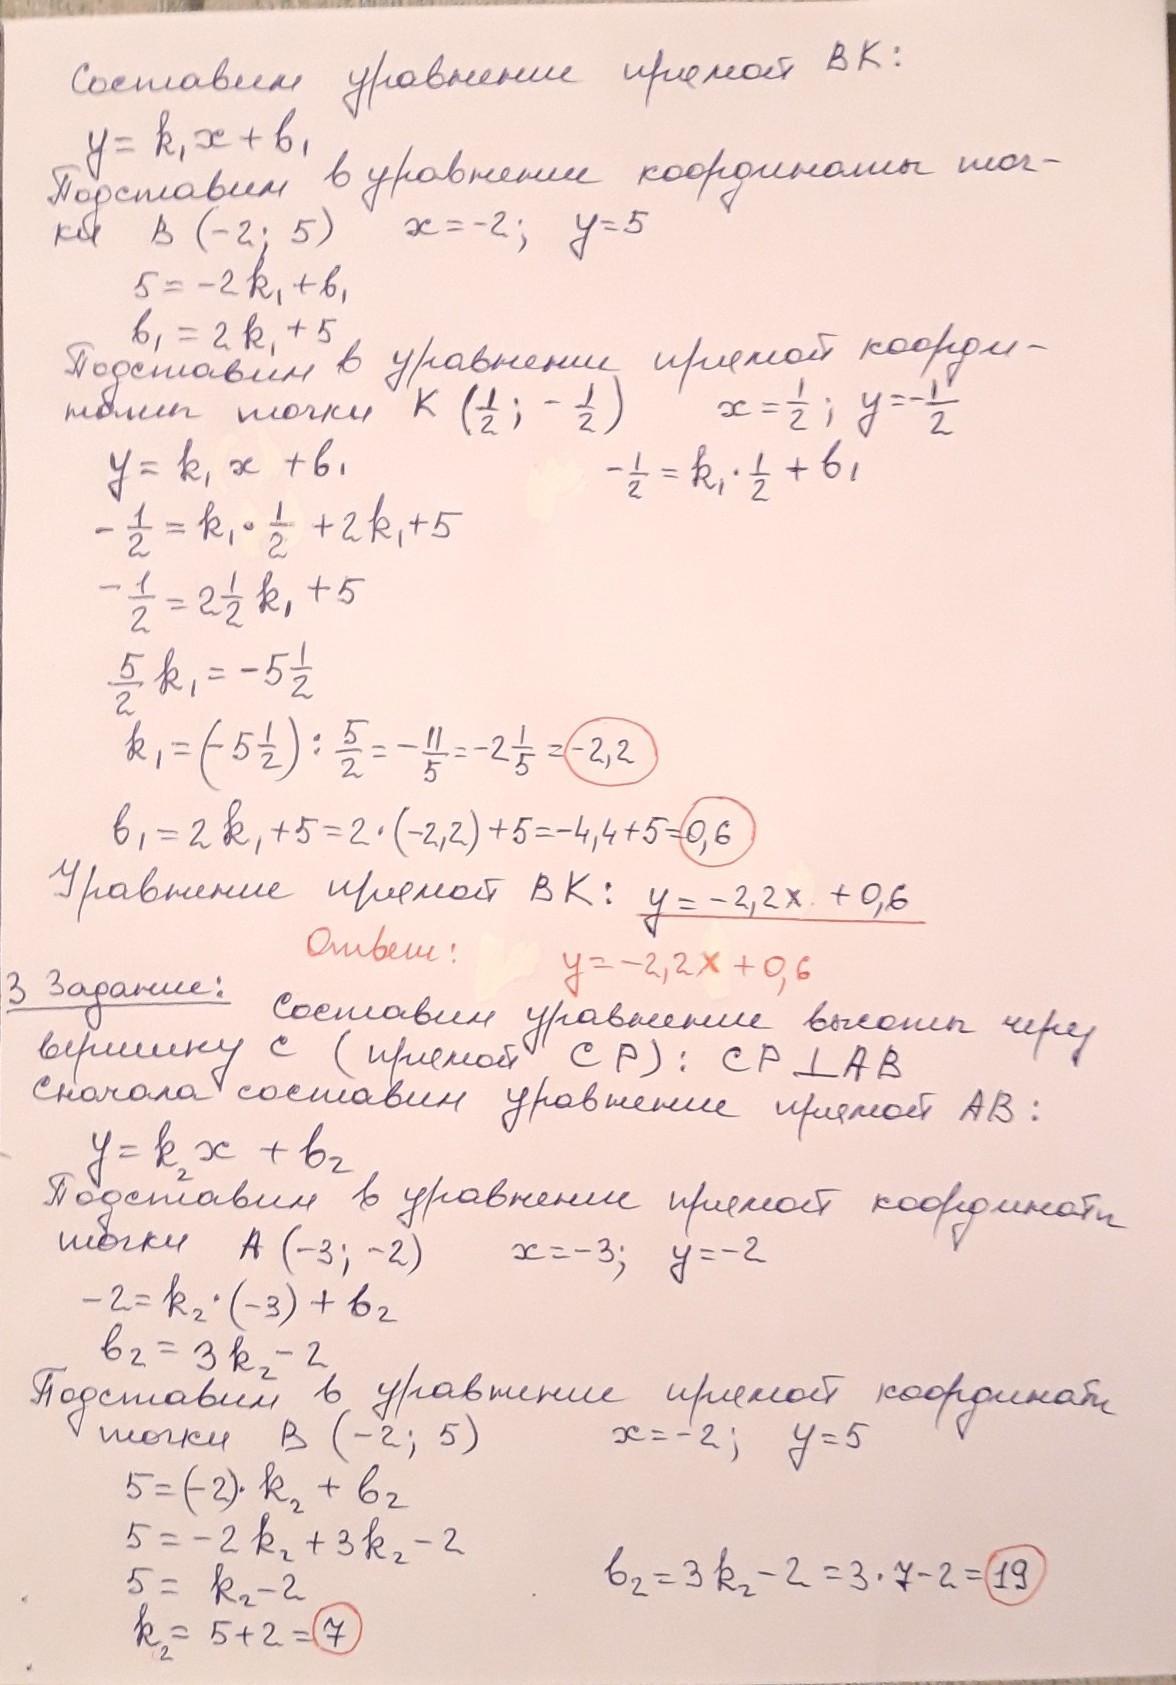 Составим уравнение прямой ВК:
y = k₁x + b₁
Подставим в уравнение координаты точ-
ки В (-2; 5) x = -2; y = 5
5 = -2k₁ + b₁
b₁ = 2k₁ + 5
Подставим в уравнение прямой коорди-
наты точки К (1/2; -1/2) x = 1/2; y = -1/2
y = k₁x + b₁ -1/2 = k₁ · 1/2 + b₁
-1/2 = k₁ · 1/2 + 2k₁ + 5
-1/2 = 2 1/2 k₁ + 5
5/2 k₁ = -5 1/2
k₁ = (-5 1/2) : 5/2 = -11/5 = -2 1/5 = -2,2
b₁ = 2k₁ + 5 = 2 · (-2,2) + 5 = -4,4 + 5 = 0,6
Уравнение прямой ВК: y = -2,2x + 0,6
Ответ: y = -2,2x + 0,6
3 Задание: Составим уравнение высоты через
вершину С (прямой СР): СР ⊥ АВ
Сначала составим уравнение прямой АВ:
y = k₂x + b₂
Подставим в уравнение прямой координаты
точки А (-3; -2) x = -3; y = -2
-2 = k₂ · (-3) + b₂
b₂ = 3k₂ - 2
Подставим в уравнение прямой координаты
точки В (-2; 5) x = -2; y = 5
5 = (-2) · k₂ + b₂
5 = -2k₂ + 3k₂ - 2
5 = k₂ - 2 b₂ = 3k₂ - 2 = 3 · 7 - 2 = 19
k₂ = 5 + 2 = 7